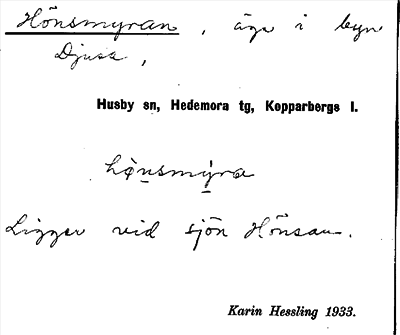 Hönsmyran, äga i byn
Djusa,
Husby sn, Hedemora tg, Kopparbergs l.
Ligger vid sjön Hönsan.
Karin Hessling 1933.